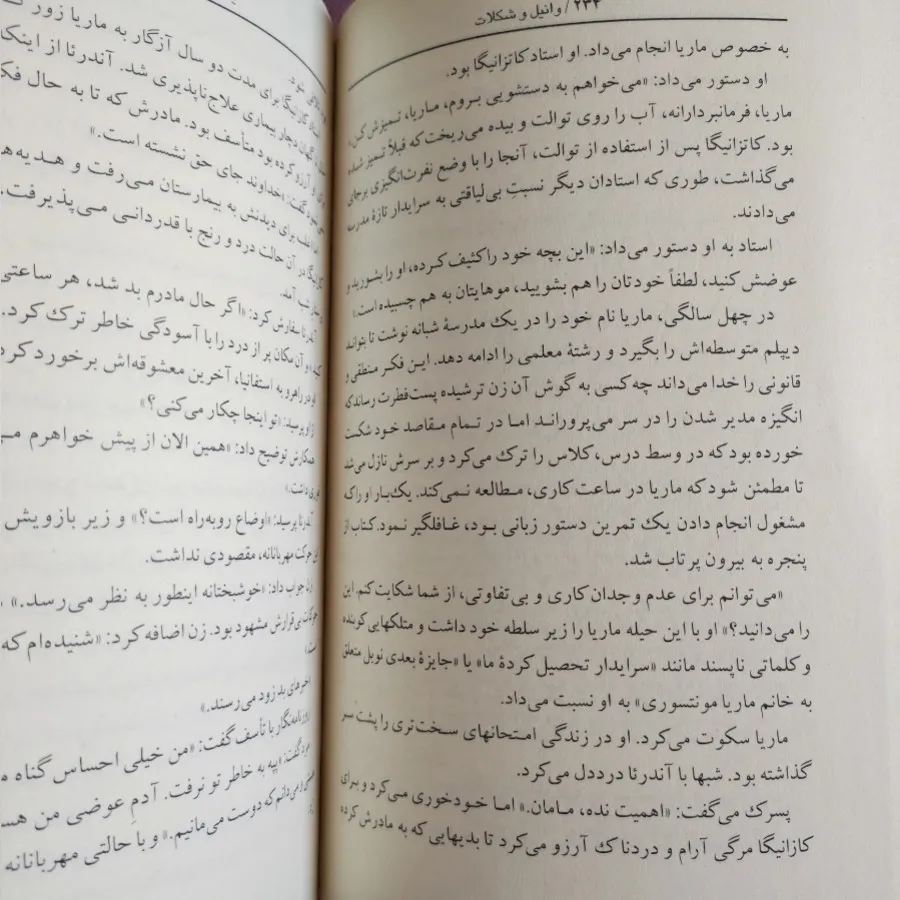 ۲۳۴ / وانیل و شکلات
به خصوص ماریا انجام می‌داد. او استاد کاتزانیگا بود.
او دستور می‌داد: «می‌خواهم به دستشویی بروم، ماریا، تمیزش کن»
ماریا، فرمانبردارانه، آب را روی توالت و بیده می‌ریخت که قبلاً تمیز شده
بود. کاتزانیگا پس از استفاده از توالت، آنجا را با وضع نفرت‌انگیزی برجای
می‌گذاشت، طوری که استادان دیگر نسبتِ بی‌لیاقتی به سرایدار تازهٔ مدرسه
می‌دادند.
استاد به او دستور می‌داد: «این بچه خود را کثیف کرده، او را بشورید و
عوضش کنید، لطفاً خودتان را هم بشویید، موهایتان به هم چسبیده است.»
در چهل سالگی، ماریا نام خود را در یک مدرسهٔ شبانه نوشت تا بتواند
دیپلم متوسطه‌اش را بگیرد و رشتهٔ معلمی را ادامه دهد. این فکر منطقی و
قانونی را خدا می‌داند چه‌کسی به گوش آن زن ترشیده پست‌فطرت رساند که
انگیزه مدیر شدن را در سر می‌پروراند اما در تمام مقاصد خود شکست
خورده بود که در وسط درس، کلاس را ترک می‌کرد و بر سرش نازل می‌شد
تا مطمئن شود که ماریا در ساعت کاری، مطالعه نمی‌کند. یک‌بار او را که
مشغول انجام دادن یک تمرین دستور زبانی بود، غافلگیر نمود. کتاب از
پنجره به بیرون پرتاب شد.
«می‌توانم برای عدم وجدان کاری و بی‌تفاوتی، از شما شکایت کنم. این
را می‌دانید؟» او با این حیله ماریا را زیر سلطه خود داشت و متلکهایی کوبنده
و کلماتی ناپسند مانند «سرایدار تحصیل کردهٔ ما» یا «جایزهٔ بعدی نوبل متعلق
به خانم ماریا مونتسوری» به او نسبت می‌داد.
ماریا سکوت می‌کرد. او در زندگی امتحانهای سخت‌تری را پشت سر
گذاشته بود. شبها با آندرئا درددل می‌کرد.
پسرک می‌گفت: «اهمیت نده، مامان.» اما خودخوری می‌کرد و برای
کازانیگا مرگی آرام و دردناک آرزو می‌کرد تا بدیهایی که به مادرش کرده
شود.
کازانیگا برای مدت دو سال آزگار به ماریا زور
دچار بیماری علاج‌ناپذیری شد. آندرئا از اینکه
آرزو کرده بود متأسف بود. مادرش که تا به حال
گفت: «خداوند جای حق نشسته است.»
برای دیدنش به بیمارستان می‌رفت و
در آن حالت درد و رنج با قدردانی می‌پذیرفت.
آمد.
سفارش کرد: «اگر حال مادرم بد شد، هر ساعتی
و آن مکان پر از درد را با آسودگی خاطر ترک کرد.
در راهرو به استفانیا، آخرین معشوقه‌اش برخورد کرد
پرسید: «تو اینجا چکار می‌کنی؟»
همکارش توضیح داد: «همین الان از پیش خواهرم
داشت.»
آندرئا پرسید: «اوضاع روبه‌راه است؟» و زیر بازویش
حرکت مهربانانه، مقصودی نداشت.
جواب داد: «خوشبختانه اینطور به نظر می‌رسد.»
بی‌قرارش مشهود بود. زن اضافه کرد: «شنیده‌ام که
بد زود می‌رسند.»
روزنامه‌نگار با تأسف گفت: «من خیلی احساس گناه
گفت: «پپه به خاطر تو نرفت. آدم عوضی من
می‌دانم که دوست می‌مانیم.» و با حالتی مهربانانه